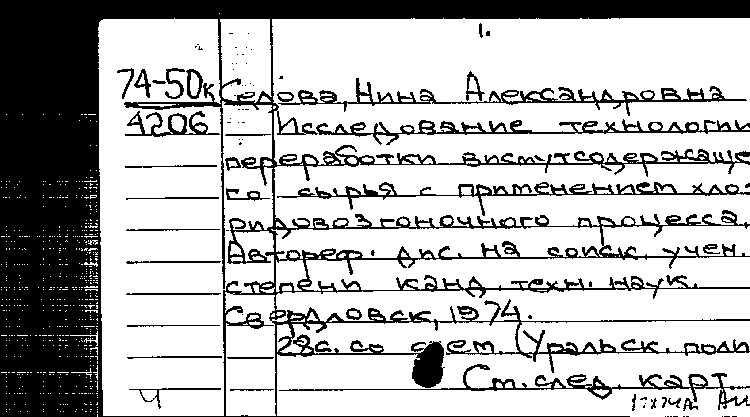 1.
74-50к Седова, Нина Александровна
4206 Исследование технологии
переработки висмутсодержаще
го сырья с применением хло
ридовозгоночного процесса.
Автореф. дис. на соиск. учен.
степени канд. техн. наук.
Свердловск, 1974.
28с. со схем. (Уральск. поли
Ст. след. карт.
Ч